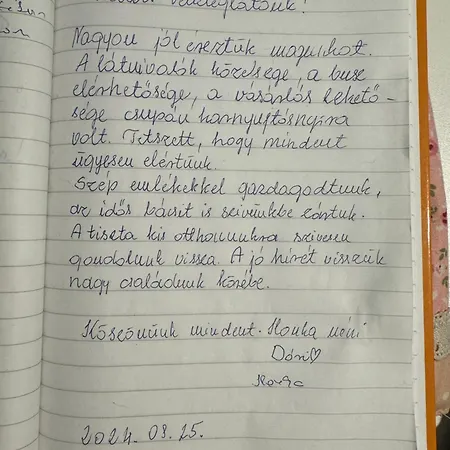 vendéglátónk!
Nagyon jól éreztük magunkat.
A látnivalók közelsége, a busz
elérhetősége, a vásárlás lehető-
sége csupán karnyujtásnyira
volt. Tetszett, hogy mindent
ügyesen elértünk.
Szép emlékekkel gazdagodtunk,
az idős bácsit is szivünkbe zártuk.
A tiszta kis otthonunkra szivesen
gondolunk vissza. A jó hírét visszük
nagy családunk körébe.
Köszönünk mindent. néni
Dóri♡
2024. 08. 25.